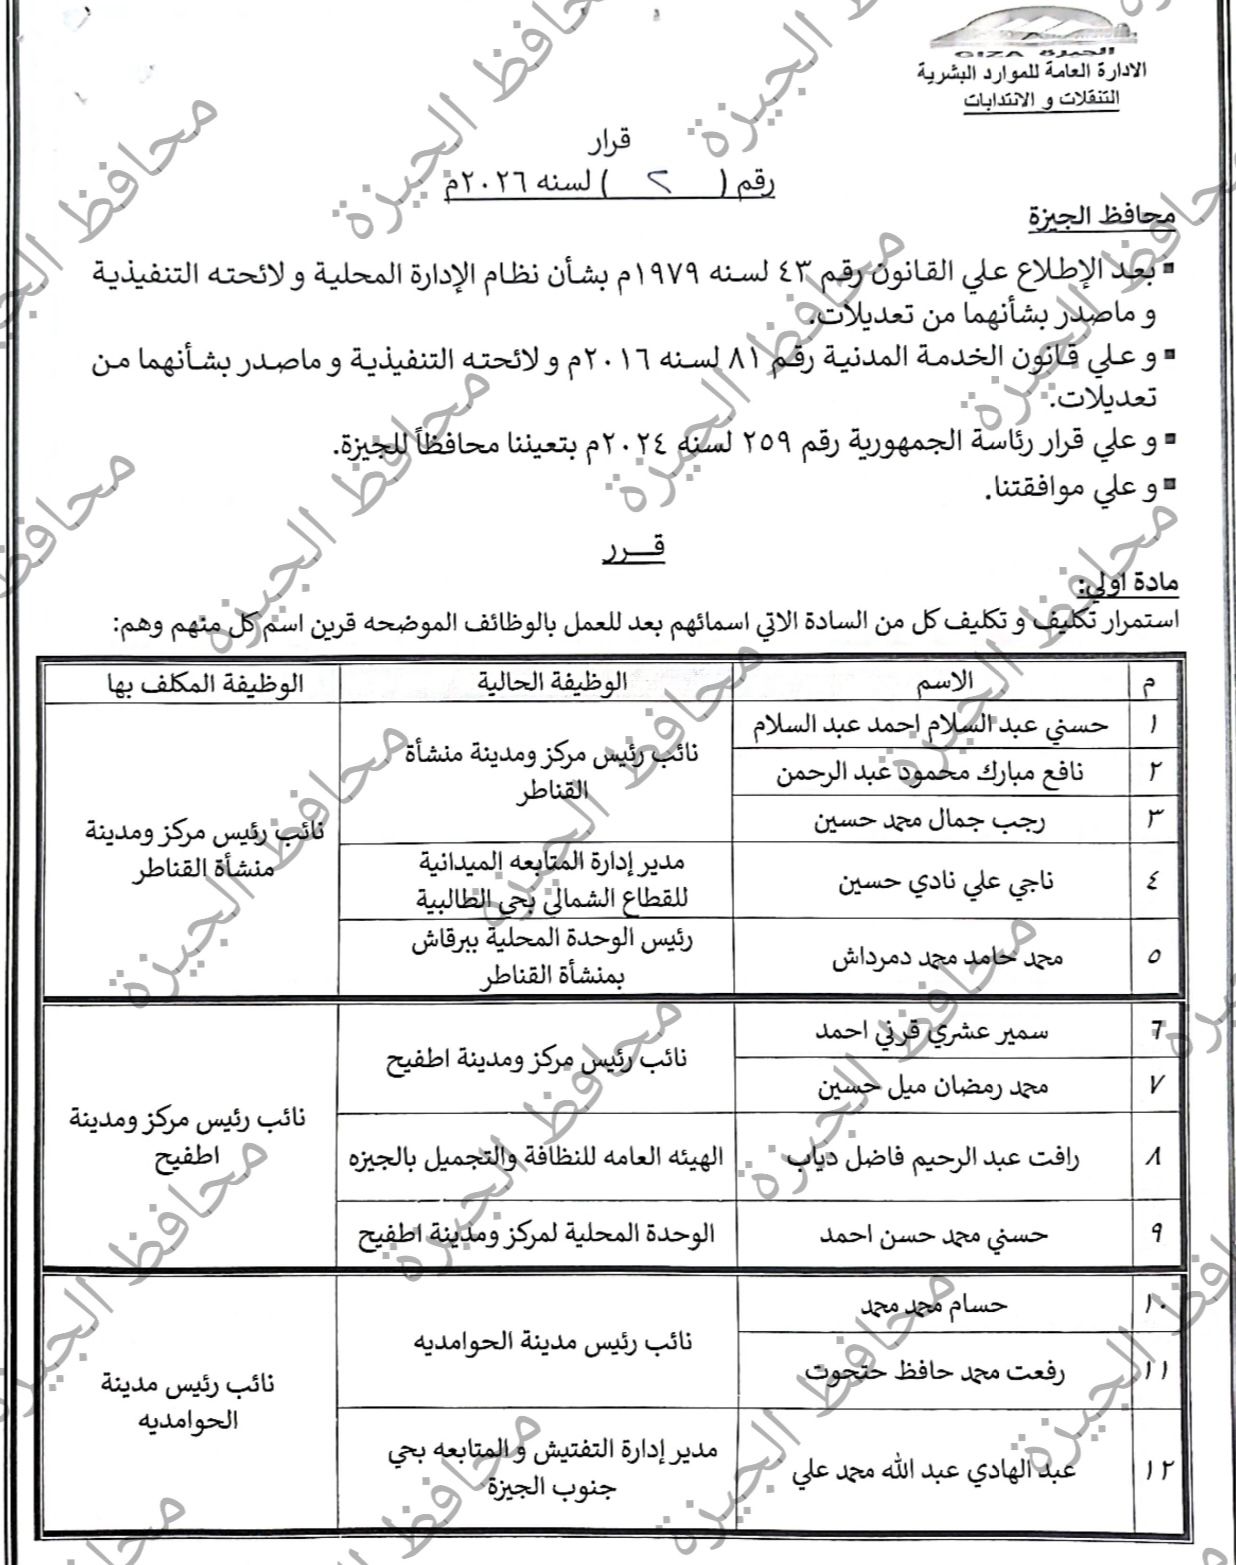 الجيزة GIZA
الادارة العامة للموارد البشرية
التنقلات و الانتدابات
قرار
رقم ( ٢ ) لسنه ٢٠٢٦م
محافظ الجيزة
▪ بعد الإطلاع علي القانون رقم ٤٣ لسنه ١٩٧٩م بشأن نظام الإدارة المحلية و لائحته التنفيذية
و ماصدر بشأنهما من تعديلات.
▪ و علي قانون الخدمة المدنية رقم ٨١ لسنه ٢٠١٦م و لائحته التنفيذية و ماصدر بشأنهما من
تعديلات.
▪ و علي قرار رئاسة الجمهورية رقم ٢٥٩ لسنه ٢٠٢٤م بتعيننا محافظاً للجيزة.
▪ و علي موافقتنا.
قـــرر
مادة اولي:
استمرار تكليف و تكليف كل من السادة الاتي اسمائهم بعد للعمل بالوظائف الموضحه قرين اسم كل منهم وهم:
م الاسم الوظيفة الحالية الوظيفة المكلف بها
١ حسني عبد السلام احمد عبد السلام
٢ نافع مبارك محمود عبد الرحمن
٣ رجب جمال محمد حسين
نائب رئيس مركز ومدينة منشأة
القناطر
٤ ناجي علي نادي حسين
مدير إدارة المتابعه الميدانية
للقطاع الشمالي بحي الطالبية
٥ محمد حامد محمد دمرداش
رئيس الوحدة المحلية ببرقاش
بمنشأة القناطر
نائب رئيس مركز ومدينة
منشأة القناطر
٦ سمير عشري قرني احمد
٧ محمد رمضان ميل حسين
نائب رئيس مركز ومدينة اطفيح
٨ رافت عبد الرحيم فاضل دياب الهيئه العامه للنظافة والتجميل بالجيزه
٩ حسني محمد حسن احمد الوحدة المحلية لمركز ومدينة اطفيح
نائب رئيس مركز ومدينة
اطفيح
١٠ حسام محمد محمد
١١ رفعت محمد حافظ حتحوت
نائب رئيس مدينة الحوامديه
١٢ عبد الهادي عبد الله محمد علي
مدير إدارة التفتيش و المتابعه بحي
جنوب الجيزة
نائب رئيس مدينة
الحوامديه
محافظ الجيزة